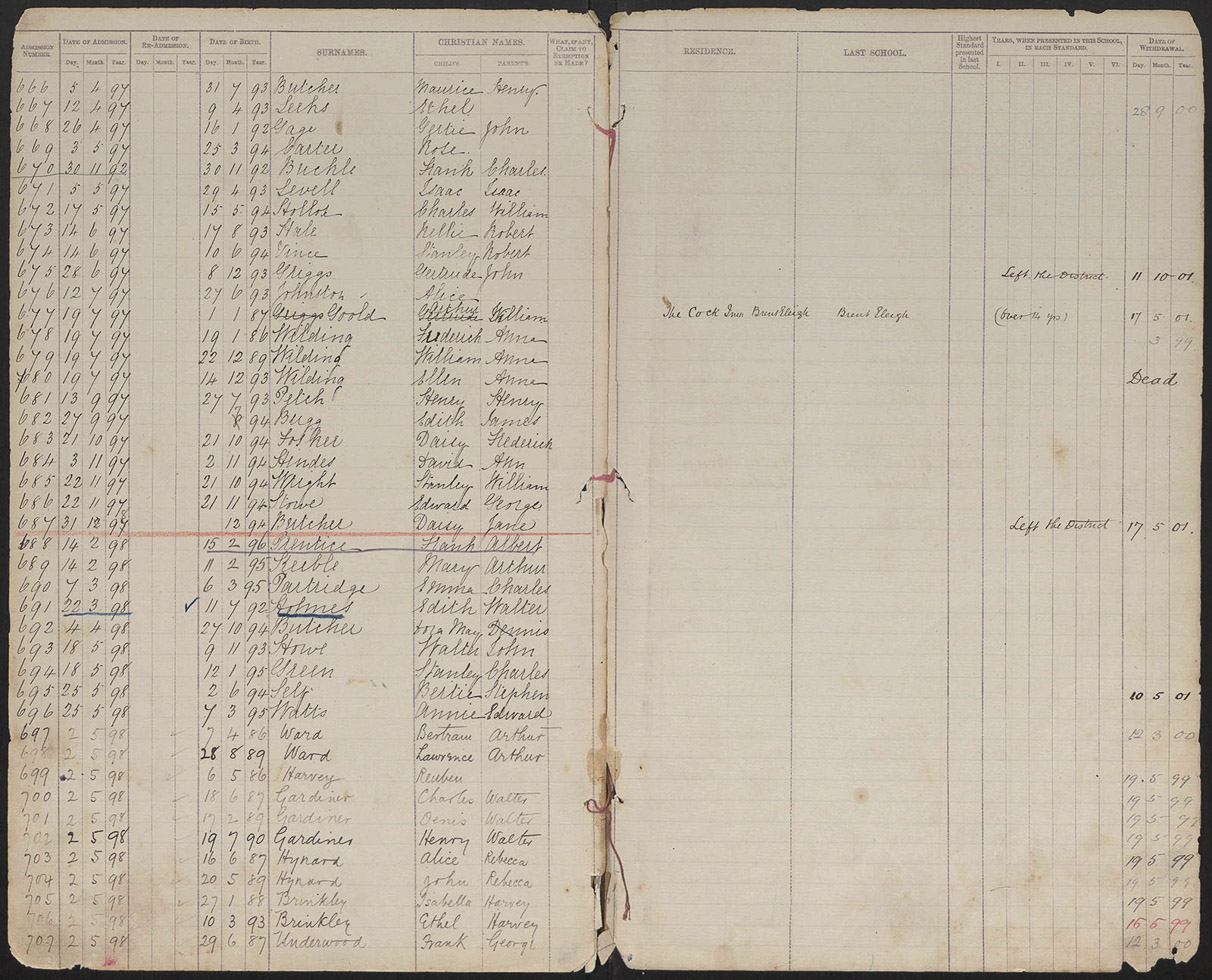 ADMISSION NUMBER. DATE OF ADMISSION. DATE OF RE-ADMISSION. DATE OF BIRTH. SURNAMES. CHRISTIAN NAMES. WHAT, IF ANY, CLAIM TO EXEMPTION IS MADE? RESIDENCE. LAST SCHOOL. Highest Standard presented in last School. YEARS, WHEN PRESENTED IN THIS SCHOOL, IN EACH STANDARD. DATE OF WITHDRAWAL.
Day. Month. Year. Day. Month. Year. Day. Month. Year. CHILD'S. PARENT'S. I. II. III. IV. V. VI. Day. Month. Year.
666 5 4 97 31 7 93 Butcher Maurice Henry
667 12 4 97 9 4 93 Leeks Ethel 28 9 00
668 26 4 97 16 1 92 Gage Gertie John
669 3 5 97 25 3 94 Carter Rose
670 30 11 92 30 11 92 Buckle Frank Charles
671 5 5 97 29 4 93 Levell Isaac Isaac
672 17 5 97 15 5 94 Charles William
673 14 6 97 17 8 93 Hale Nellie Robert
674 14 6 97 10 6 94 Vince Stanley Robert
675 28 6 97 8 12 93 Griggs Gertrude John Left the District 11 10 01
676 12 7 97 27 6 93 Johnston Alice
677 19 7 97 1 1 87 Griggs Goold Gertrude William The Cock Inn Brent Eleigh Brent Eleigh (over 14 yrs) 17 5 01
678 19 7 97 19 1 86 Wilding Frederick Anna 3 99
679 19 7 97 22 12 89 Wilding William Anna
680 19 7 97 14 12 93 Wilding Ellen Anna Dead
681 13 9 97 27 7 93 Petch Henry Henry
682 27 9 97 94 Bugg Edith James
683 21 10 97 21 10 94 Daisy Frederick
684 3 11 97 2 11 94 Hindes David Ann
685 22 11 97 21 10 94 Wright Stanley William
686 22 11 97 21 11 94 Stowe Edward George
687 31 12 97 12 94 Butcher Daisy Jane Left the District 17 5 01
688 14 2 98 15 2 96 Prentice Frank Albert
689 14 2 98 11 2 95 Keeble Mary Arthur
690 7 3 98 6 3 95 Partridge Emma Charles
691 22 3 98 11 7 92 Holmes Edith Walter
692 4 4 98 27 10 94 Butcher Dora May Dennis
693 18 5 98 9 11 93 Howe Walter John
694 18 5 98 12 1 95 Green Stanley Charles
695 25 5 98 2 6 94 Self Bertie Stephen 10 5 01
696 25 5 98 7 3 95 Watts Annie Edward
697 2 5 98 7 4 86 Ward Bertram Arthur 12 3 00
698 2 5 98 28 8 89 Ward Lawrence Arthur
699 2 5 98 6 5 86 Harvey Reuben 19 5 99
700 2 5 98 18 6 87 Gardiner Charles Walter 19 5 99
701 2 5 98 17 2 89 Gardiner Denis Walter 19 5 99
702 2 5 98 19 7 90 Gardiner Henry Walter 19 5 99
703 2 5 98 16 6 87 Hynard Alice Rebecca 19 5 99
704 2 5 98 20 5 89 Hynard John Rebecca 19 5 99
705 2 5 98 27 1 88 Brinkley Isabella Harvey 19 5 99
706 2 5 98 10 3 93 Brinkley Ethel Harvey 15 5 99
707 2 5 98 29 6 87 Underwood Frank George 12 3 00